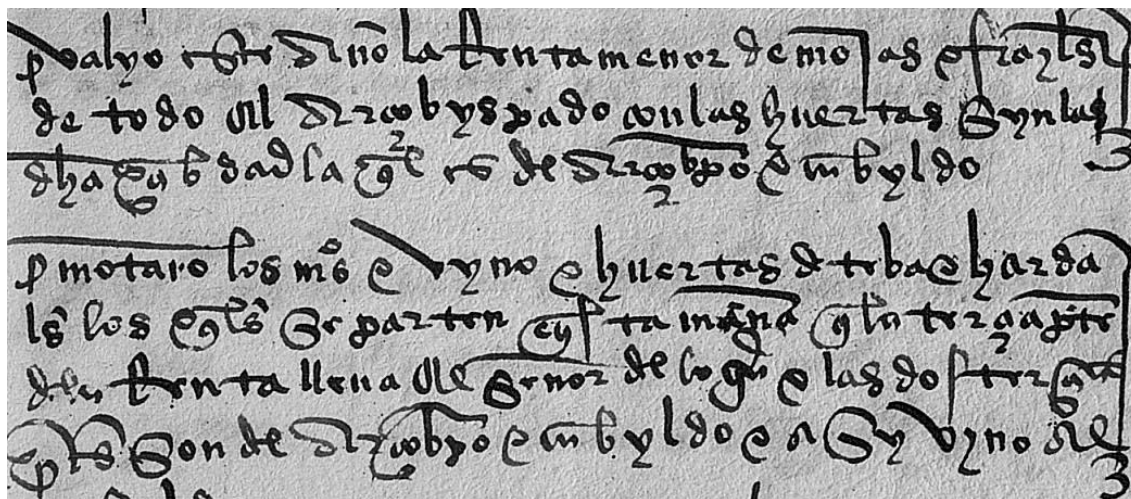 p valyo este año la Renta menor de moças e frayles
de todo el arçobyspado con las huertas syn las
dha çibdad la qual es de arçobpo e cabyldo
p montaro los mrs e vyno e huertas de teba e harda
les los quales se parten en esta manera que la terçia parte
de la Renta lleua el señor de logar e las dos terçias
partes son de arçobpo e cabyldo e asy vyno al